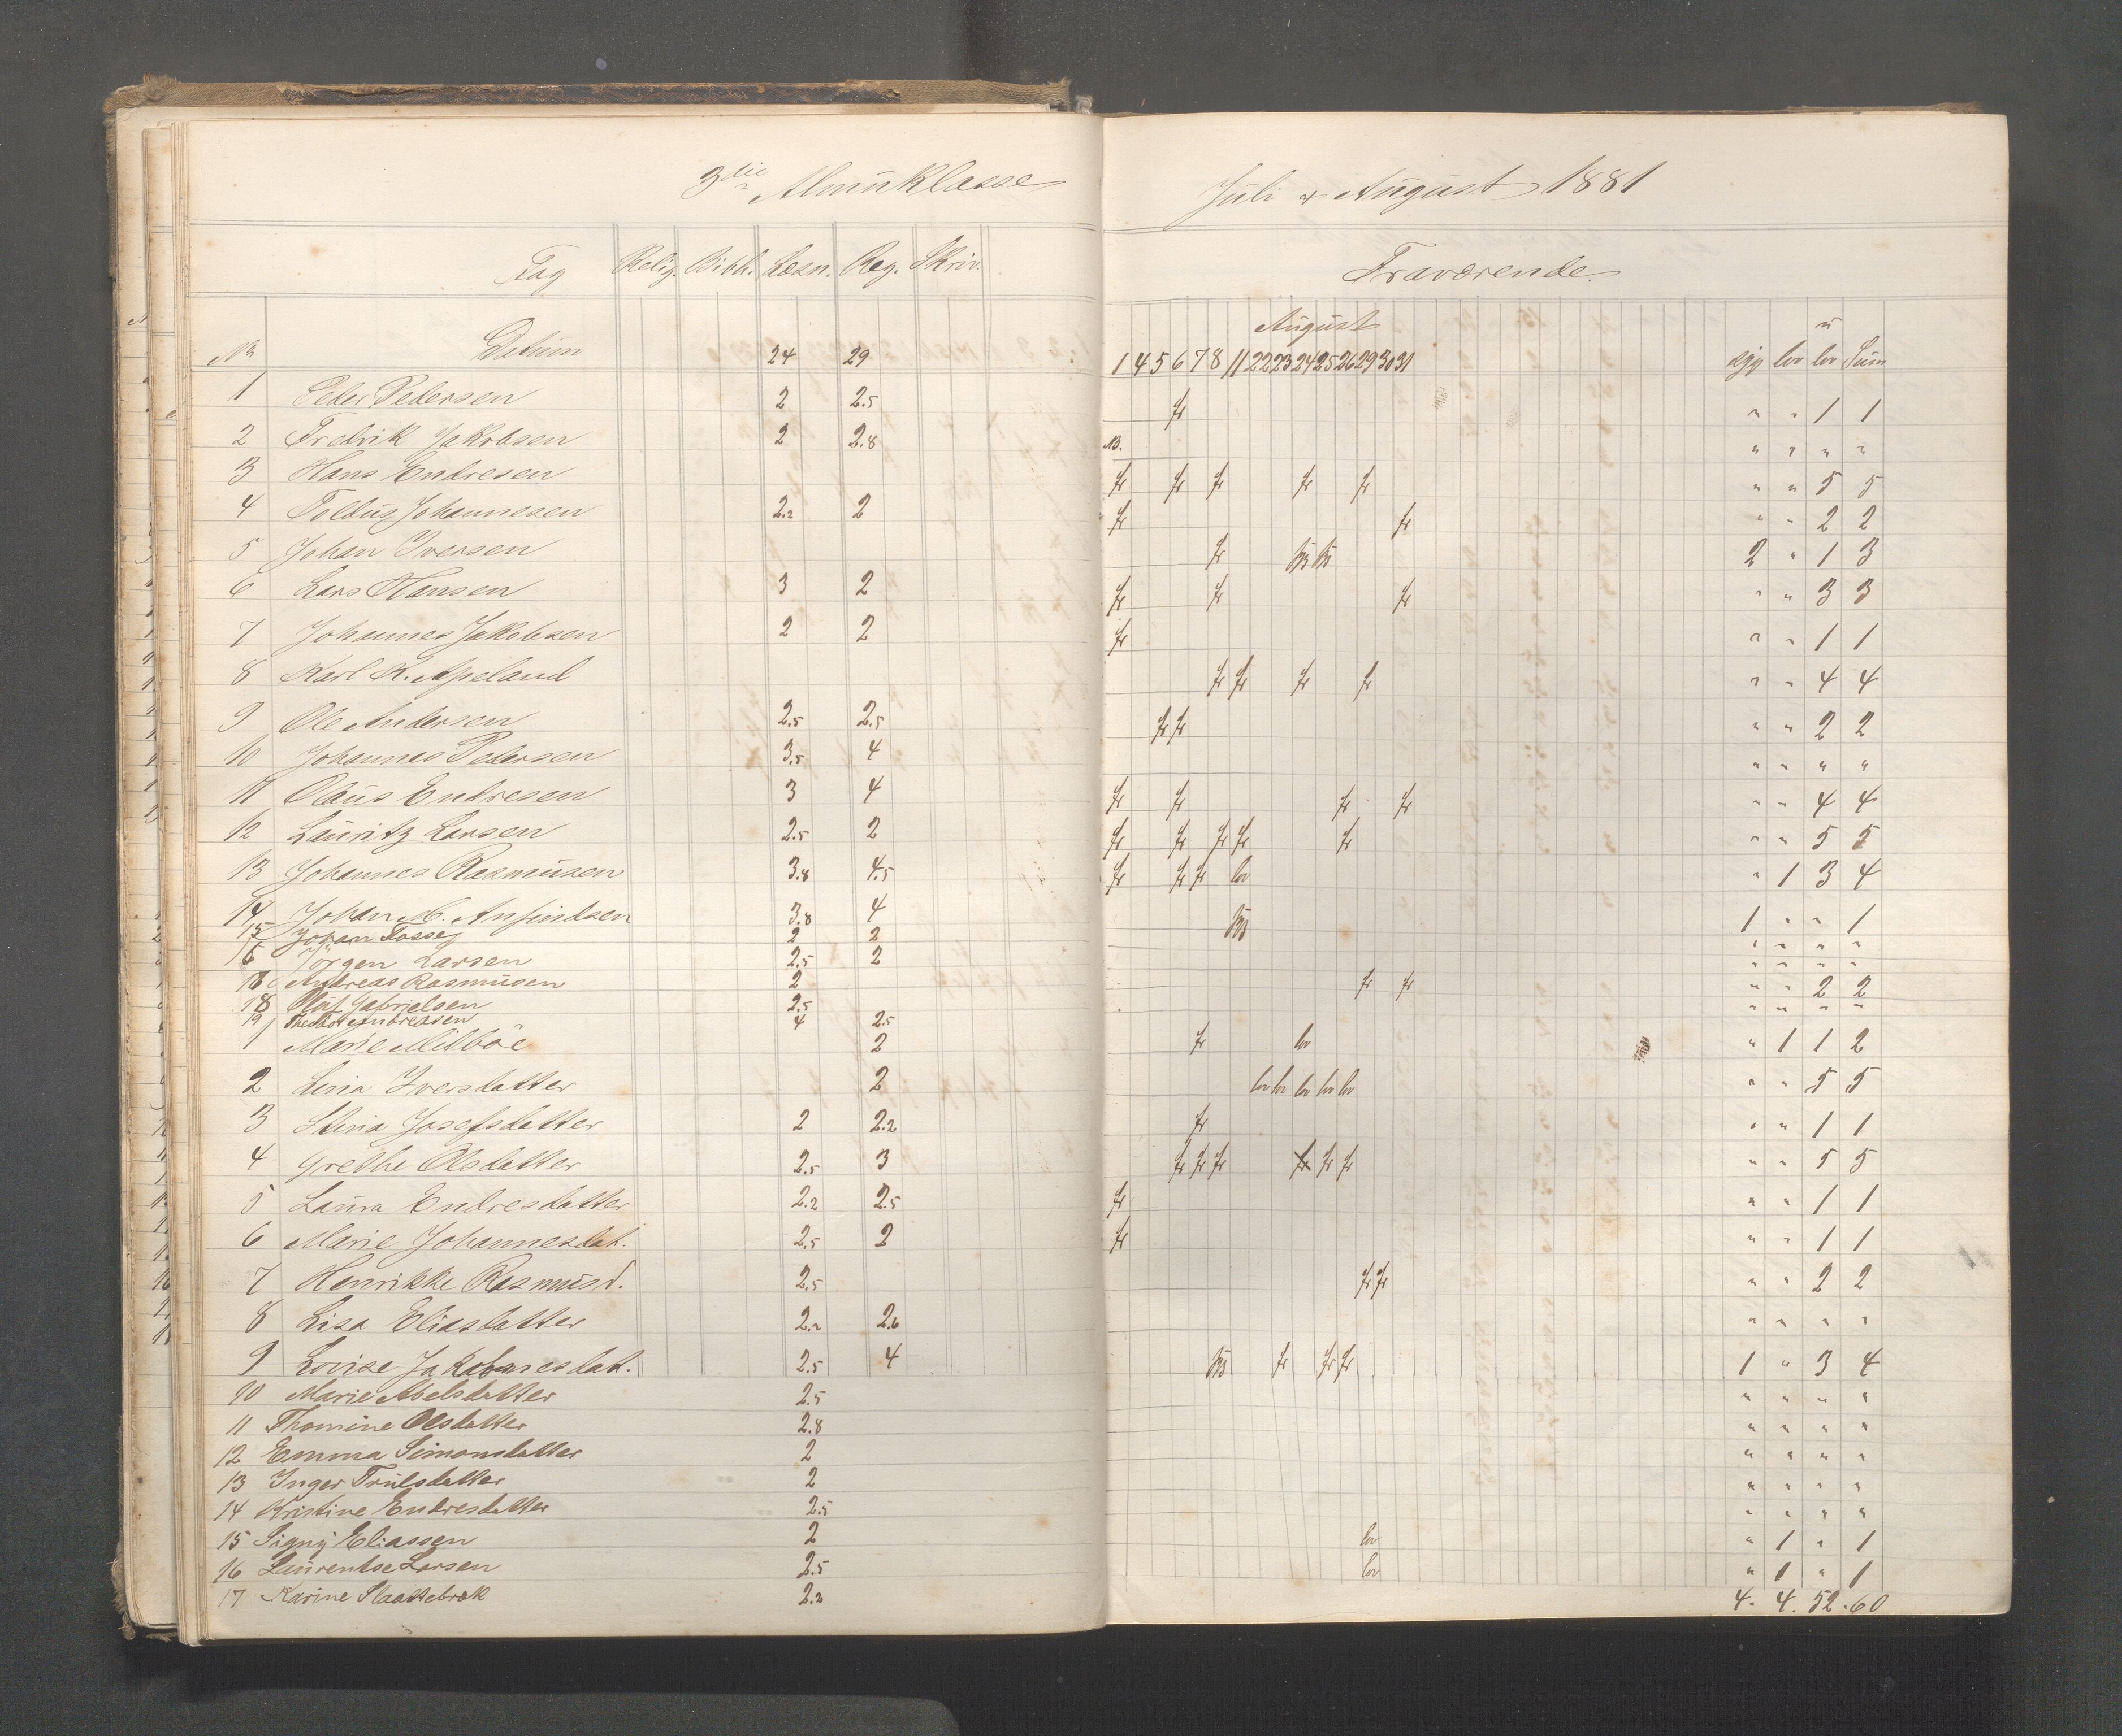 3die Almuklasse
Juli & August 1881
Fag Relig. Bibh. Læsn. Reg. Skriv.
Fraværende
August u
No Datum 24 29 1 4 5 6 7 8 11 22 23 24 25 26 29 30 31 syg lov lov Sum
1 Peder Pedersen 2 2.5 fr " " 1 1
2 Fredrik Jakobsen 2 2.8 NB. " " " "
3 Hans Endresen fr fr fr fr fr " " 5 5
4 Johannesen 2.2 2 fr fr " " 2 2
5 Johan Iversen fr syg syg 2 " 1 3
6 Lars Hansen 3 2 fr fr fr " " 3 3
7 Johannes Jakobsen 2 2 fr " " 1 1
8 Karl K. Apeland fr fr fr fr " " 4 4
9 Ole Andersen 2.5 2.5 fr fr " " 2 2
10 Johannes Pedersen 3.5 4 " " " "
11 Olaus Endresen 3 4 fr fr fr fr " " 4 4
12 Lauritz Larsen 2.5 2 fr fr fr fr fr " " 5 5
13 Johannes Rasmusen 3.8 4.5 fr fr fr lov " 1 3 4
14 Johan M. Anfindsen 3.8 4 syg 1 " " 1
15 Johan Fosse 2 2 " " " "
16 Jörgen Larsen 2.5 2 " " " "
Andreas Rasmusen 2 fr fr " " 2 2
18 Oluf Gabrielsen 2.5 " " " "
19 Andreasen 4 2.5
1 Marie Milböe 2 fr lov " 1 1 2
2 Lina Iversdatter 2 lov lov lov lov lov " " 5 5
3 Stina Josefsdatter 2 2.2 fr " " 1 1
4 Grethe Olsdatter 2.5 3 fr fr fr fr fr fr " " 5 5
5 Laura Endresdatter 2.2 2.5 fr " " 1 1
6 Marie Johannesdat. 2.5 2 fr " " 1 1
7 Henrikke Rasmusd. 2.5 fr fr " " 2 2
8 Lisa Eliasdatter 2.2 2.6 " " " "
9 Lovise 2.5 4 syg fr fr fr 1 " 3 4
10 Marie Abelsdatter 2.5 " " " "
11 Thomine Olsdatter 2.8 " " " "
12 Emma Simonsdatter 2 " " " "
13 Inger Trulsdatter 2 " " " "
14 Kristine Endresdatter 2.5 " " " "
15 Signy Eliassen 2 lov " 1 " 1
16 Laurentse Larsen 2.5 lov " 1 " 1
17 Karine Slaattebræk 2.2 4. 4. 52. 60